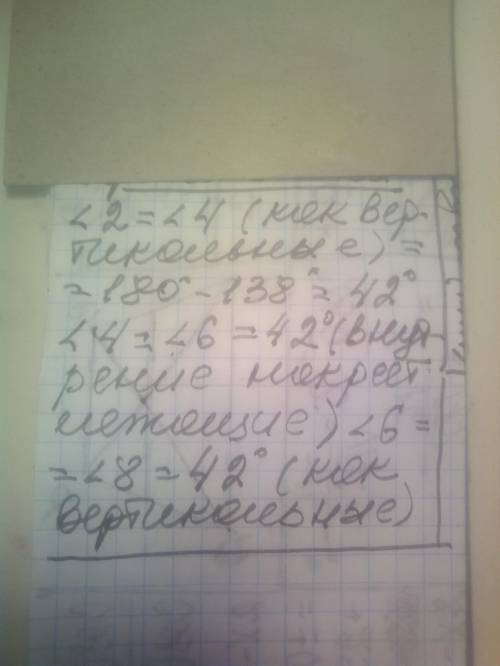 ∠2 = ∠4 (как вер-
тикальные) =
= 180° - 138° = 42°
∠4 = ∠6 = 42° (внут
рение накрест
лежащие) ∠6 =
= ∠8 = 42° (как
вертикальные)